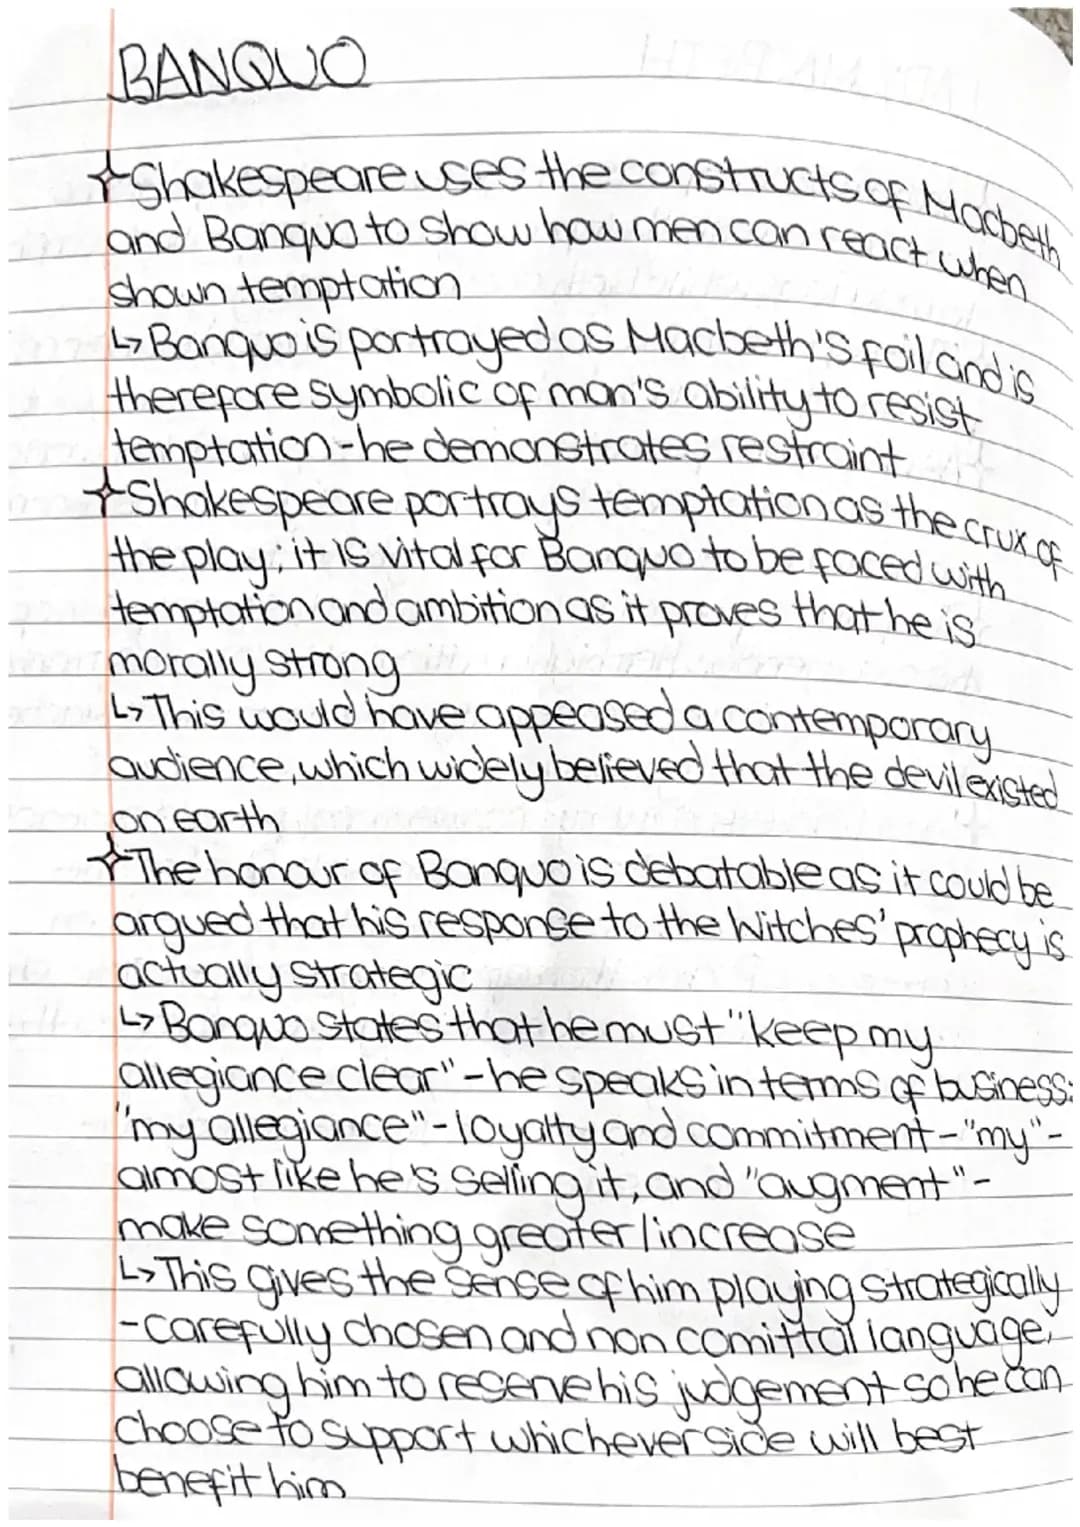 BANQUO
✧Shakespeare uses the constructs of Macbeth
and Banquo to show how men can react when
shown temptation
↳Banquo is portrayed as Macbeth's foil and is
therefore symbolic of man's ability to resist
temptation - he demonstrates restraint
✧Shakespeare portrays temptation as the crux of
the play; it is vital for Banquo to be faced with
temptation and ambition as it proves that he is
morally strong
↳This would have appeased a contemporary
audience, which widely believed that the devil existed
on earth
✧The honour of Banquo is debatable as it could be
argued that his response to the Witches' prophecy is
actually strategic
↳Banquo states that he must "keep my
allegiance clear" - he speaks in terms of business:
"my allegiance" - loyalty and commitment - "my" -
almost like he's selling it, and "augment" -
make something greater/increase
↳This gives the sense of him playing strategically
- carefully chosen and non comittal language,
allowing him to reserve his judgement so he can
choose to support whichever side will best
benefit him